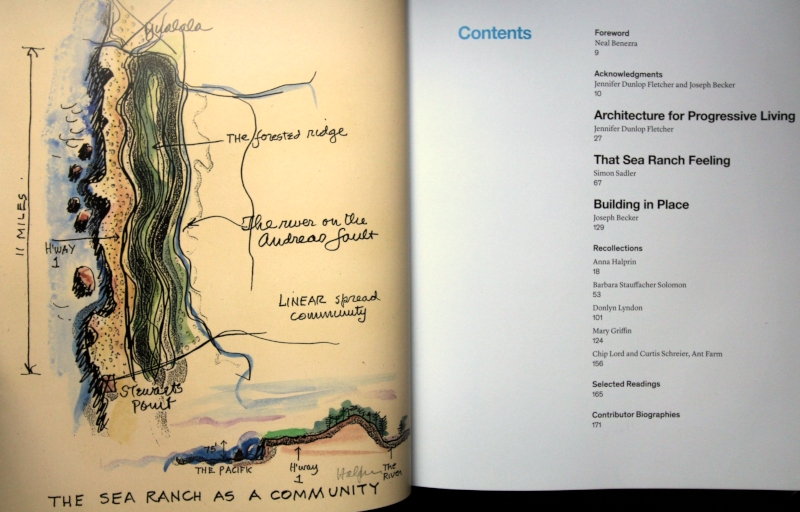 Gualala
The forested ridge
11 MILES
The river on the
Andreas fault
H'WAY
1
LINEAR spread
community
Stewarts
Point
75'
THE PACIFIC
H'way
1
Halprin
The
River
THE SEA RANCH AS A COMMUNITY
Contents
Foreword
Neal Benezra
9
Acknowledgments
Jennifer Dunlop Fletcher and Joseph Becker
10
Architecture for Progressive Living
Jennifer Dunlop Fletcher
27
That Sea Ranch Feeling
Simon Sadler
67
Building in Place
Joseph Becker
129
Recollections
Anna Halprin
18
Barbara Stauffacher Solomon
53
Donlyn Lyndon
101
Mary Griffin
124
Chip Lord and Curtis Schreier, Ant Farm
156
Selected Readings
165
Contributor Biographies
171